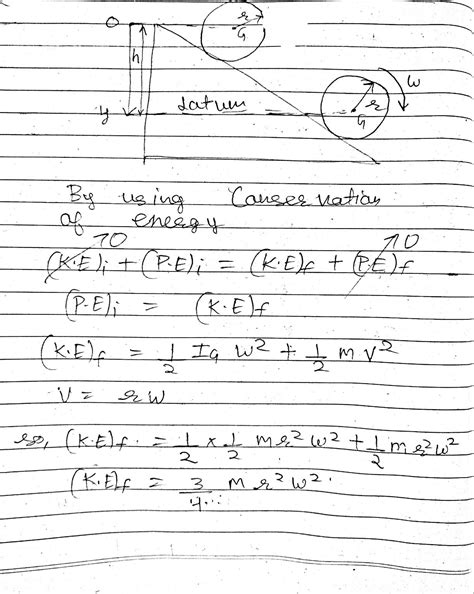 0
r
G
h
y
datum
ω
r
G
By using Conservation
of energy
(K.E)i + (P.E)i = (K.E)f + (P.E)f
→0
→0
(P.E)i = (K.E)f
(K.E)f = 1/2 IG ω² + 1/2 m v²
V = rω
so, (K.E)f = 1/2 × 1/2 m r² ω² + 1/2 m r² ω²
(K.E)f = 3/4 m r² ω².